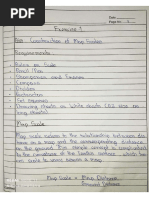 Date
Page No.
Exercise-1
Aim: Construction of Map Scales
Requirements
Ruler or Scale
Pencil/Pen
Sharpener and Eraser
Compass
Divider
Protractor
Set squares
Drawing sheets or white sheets (A4 size or any sheets)
Map scale refers to the relationship between dis
tance on a map and the corresponding distance
on the ground. This simple concept is complicated
by the curvature of the Earth's surface, which for
ces scale to vary across a map.
Map Scale = Map Distance
Ground Distance